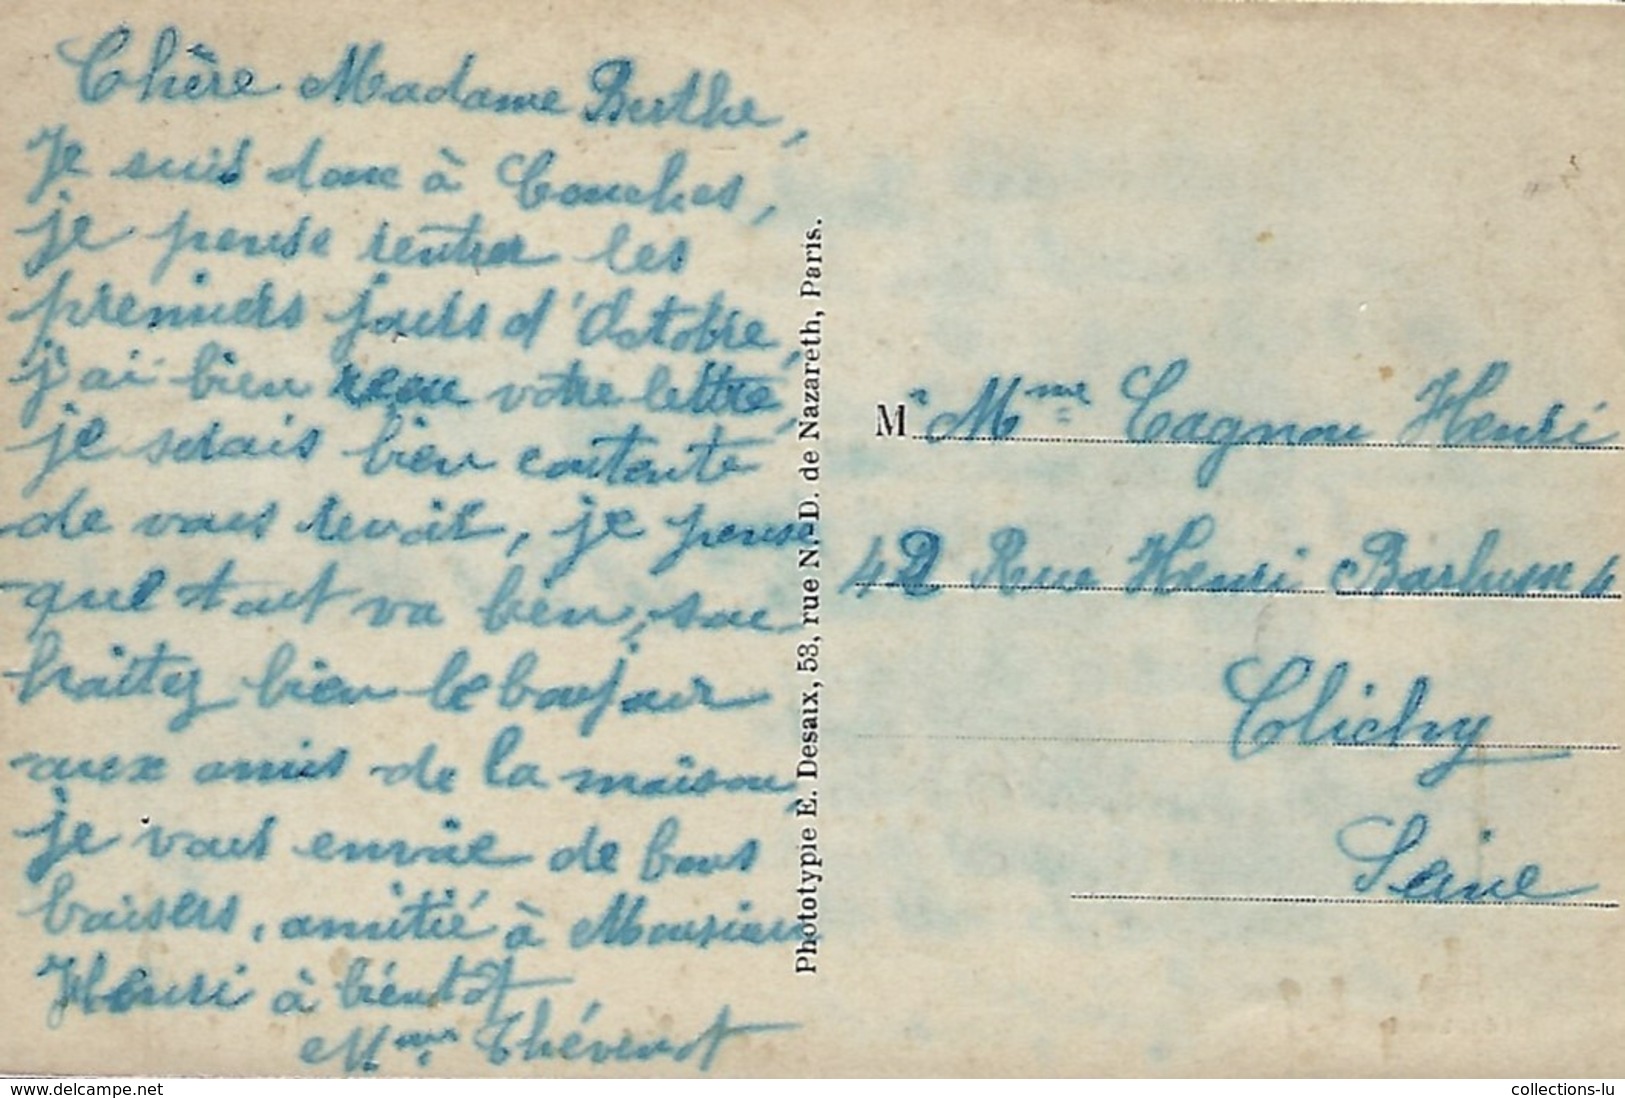 Chère Madame Berthe,
Je suis donc à Couches,
je pense rentrer les
premiers jours d'Octobre,
j'ai bien recu votre lettre,
je serais bien contente
de vous revoir, je pense
que tout va bien, sou
haitez bien le bonjour
aux amis de la maison,
je vous envoie de bons
baisers, amitié à Monsieur
Henri à bientôt
Mme Thévenot
Phototypie E. Desaix, 53, rue N.-D. de Nazareth, Paris.
M Mme Cagnon Henri
42 Rue Henri Barbusse
Clichy
Seine
www.delcampe.net
collections-lu